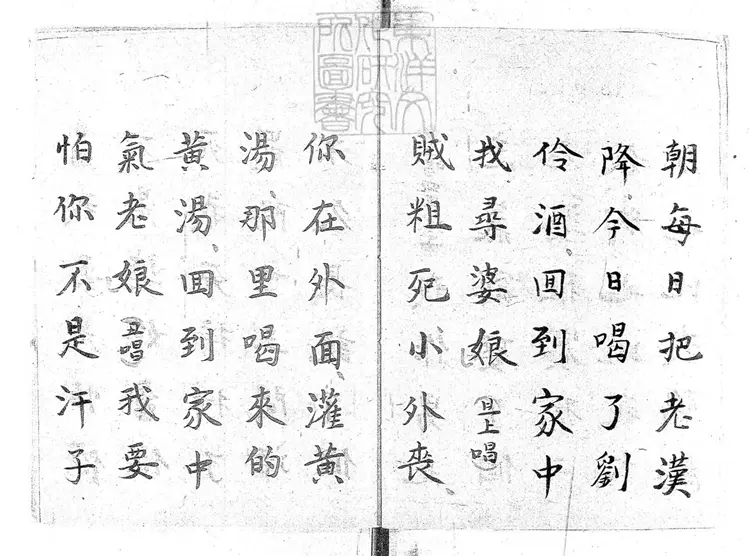 朝每日把老漢
降今日喝了劉
伶酒回到家中
我尋婆娘旦上唱
賊粗死小外喪
你在外面灌黄
湯那里喝來的
黄湯回到家中
氣老娘丑唱我要
怕你不是汗子